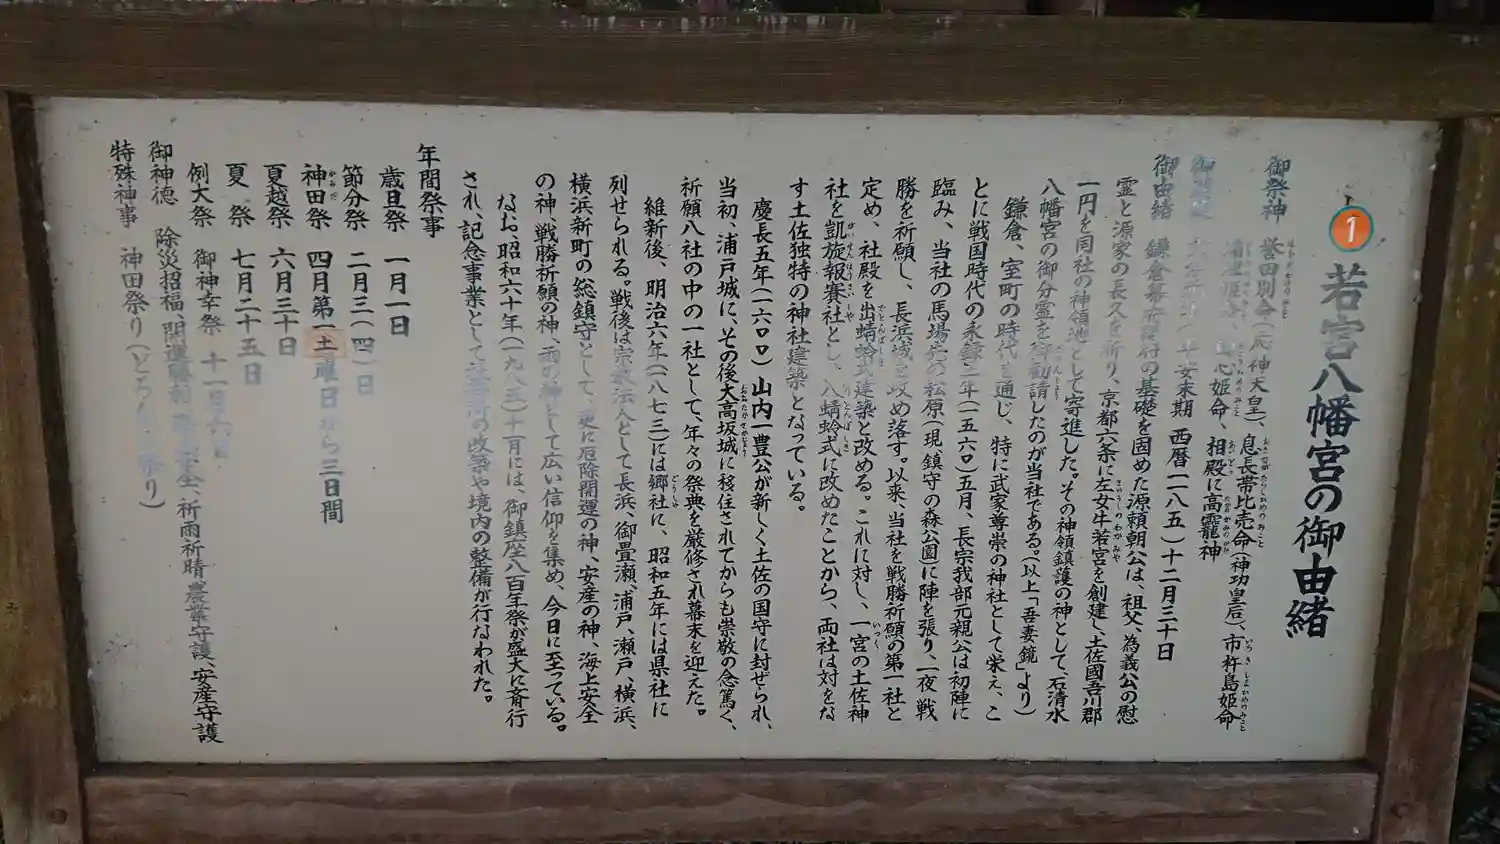 1 若宮八幡宮の御由緒
御祭神 誉田別命(応神天皇)、息長帯比売命(神功皇后)、市杵島姫命
姫命、相殿に高龗神
安末期 西暦一一八五)十二月三十日
御由緒 鎌倉幕府の基礎を固めた源頼朝公は、祖父、為義公の慰
霊と源家の長久を祈り、京都六条に左女牛若宮を創建し、土佐國吾川郡
一円を同社の神領地として寄進した。その神領鎮護の神として、石清水
八幡宮の御分霊を御勧請したのが当社である。(以上「吾妻鏡」より)
鎌倉、室町の時代を通じ、特に武家尊崇の神社として栄え、こ
とに戦国時代の永禄三年(一五六〇)五月、長宗我部元親公は初陣に
臨み、当社の馬場先の松原(現、鎮守の森公園)に陣を張り、一夜、戦
勝を祈願し、長浜城を攻め落す。以来、当社を戦勝祈願の第一社と
定め、社殿を出蜻蛉式建築と改める。これに対し、一宮の土佐神
社を凱旋報賽社とし、入蜻蛉式に改めたことから、両社は対をな
す土佐独特の神社建築となっている。
慶長五年(一六〇〇)山内一豊公が新しく土佐の国守に封ぜられ、
当初、浦戸城に、その後大高坂城に移住されてからも崇敬の念篤く、
祈願八社の中の一社として、年々の祭典を厳修され幕末を迎えた。
維新後、明治六年(一八七三)には郷社に、昭和五年には県社に
列せられる。戦後は宗教法人として長浜、御畳瀬、浦戸、瀬戸、横浜、
横浜新町の総鎮守として、更に厄除開運の神、安産の神、海上安全
の神、戦勝祈願の神、雨の神として広い信仰を集め、今日に至っている。
なお、昭和六十年(一九八五)十月には、御鎮座八百年祭が盛大に斉行
され、記念事業として の改築や境内の整備が行なわれた。
年間祭事
歳旦祭 一月一日
節分祭 二月三(四)日
神田祭 四月第一土曜日から三日間
夏越祭 六月三十日
夏祭 七月二十五日
例大祭 御神幸祭 十一月六日
御神徳 除災招福、開運勝利、 安全、祈雨祈晴、農業守護、安産守護
特殊神事 神田祭り(どろんこ祭り)